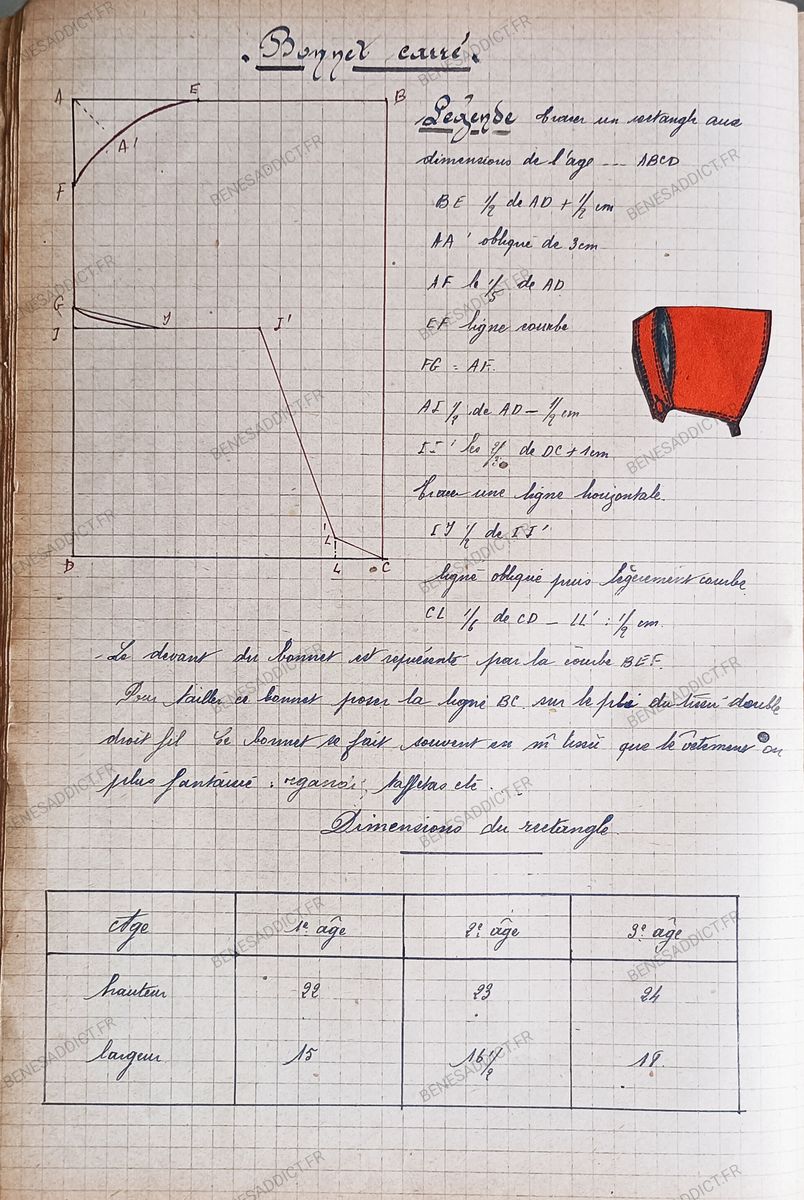 Bonnet carré.
A E B
A'
F
G
I J I'
L'
D L C
Légende tracer un rectangle aux
dimensions de l'age --- ABCD
BE 1/2 de AD + 1/2 cm
AA' oblique de 3cm
AF le 1/5 de AD
EF ligne courbe
FG = AF.
AI 1/2 de AD - 1/2 cm
II' les de DC + 1cm
tracer une ligne horizontale.
IJ 1/2 de II'
ligne oblique puis légèrement courbe
CL 1/6 de CD - LL' : 1/2 cm.
- Le devant du bonnet est représenté par la courbe BEF.
Pour tailler ce bonnet poser la ligne BC sur le pli du tissu double
droit fil Ce bonnet se fait souvent en m̂ tissu que le vêtement ou
plus fantaisie : organdi, taffetas etc.
Dimensions du rectangle
Age 1e âge 2e âge 3e âge
hauteur 22 23 24
largeur 15 16 1/2 18
BENESADDICT.FR